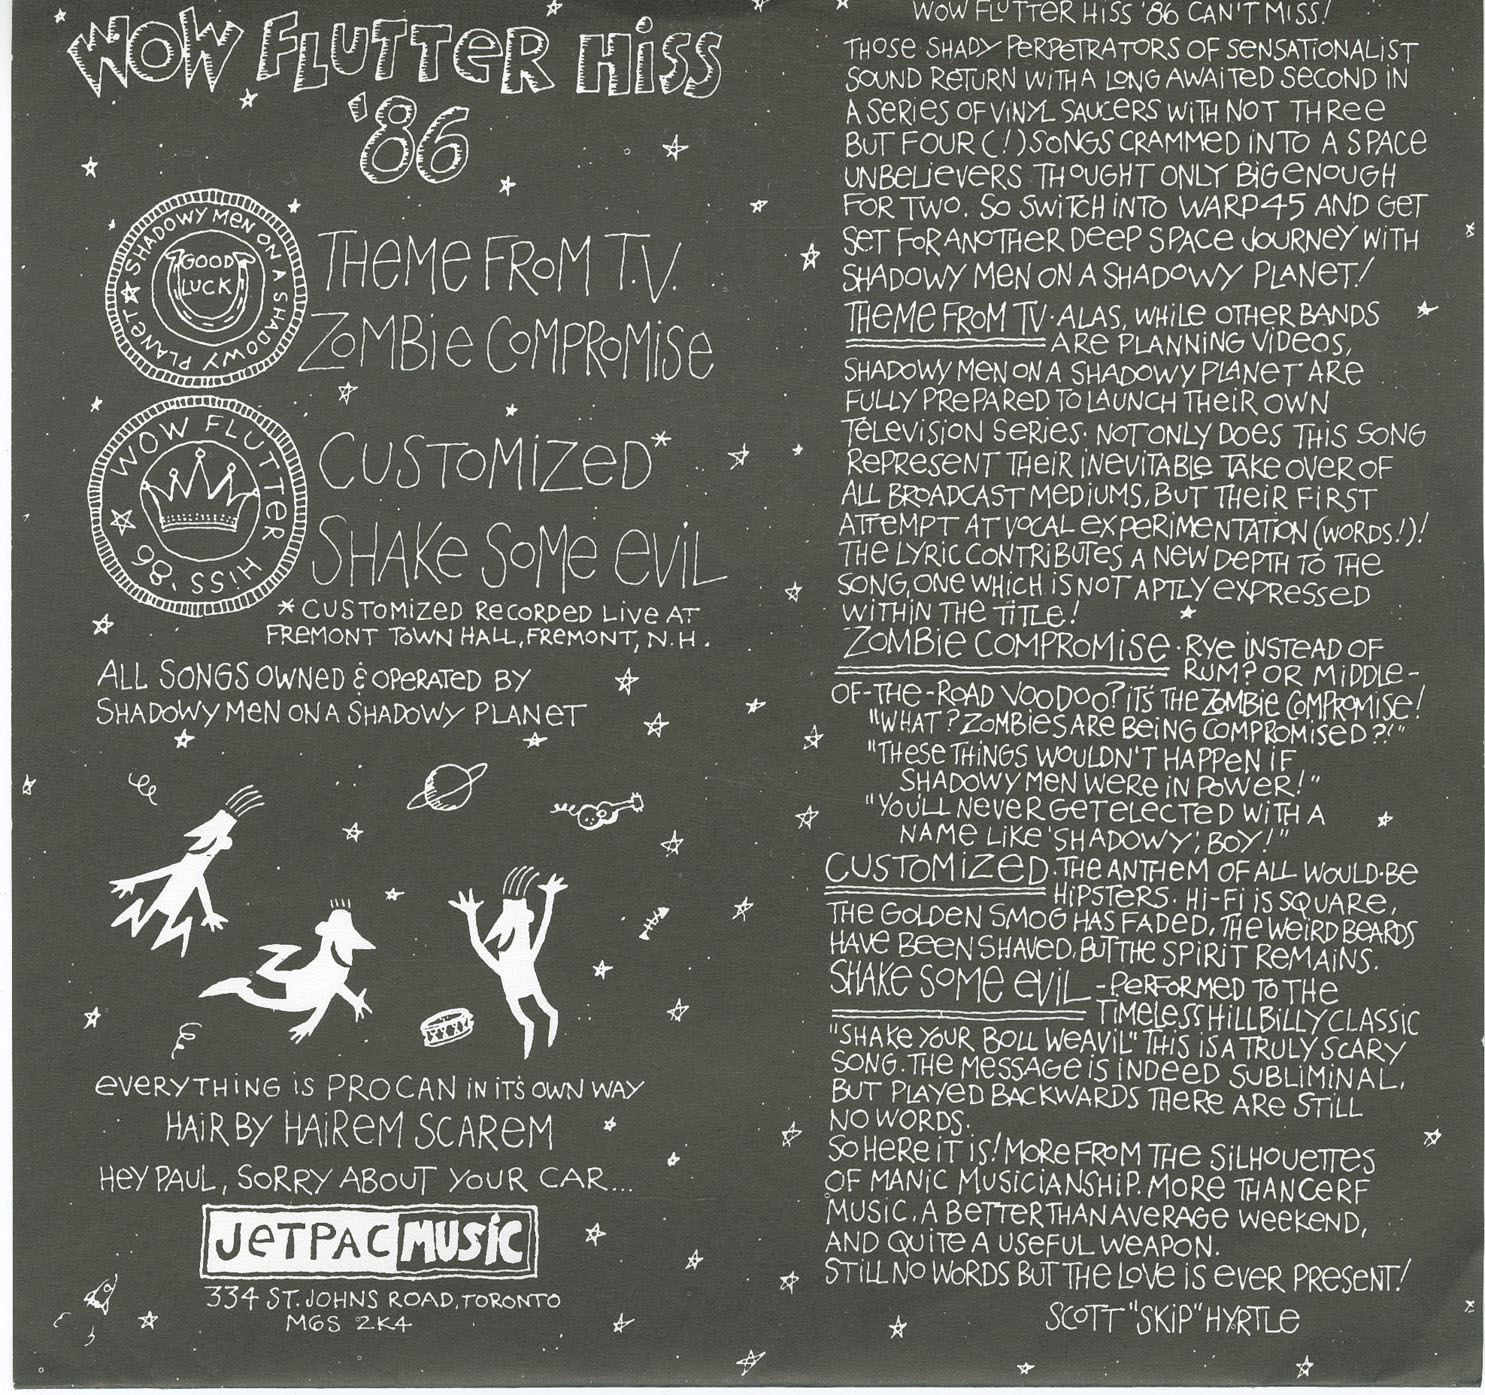 WOW FLUTTER HISS
'86
SHADOWY MEN ON A SHADOWY PLANET
GOOD
LUCK
THEME FROM T.V.
ZOMBIE COMPROMISE
WOW FLUTTER HISS '86
CUSTOMIZED*
SHAKE SOME EVIL
* CUSTOMIZED RECORDED LIVE AT
FREMONT TOWN HALL, FREMONT, N.H.
ALL SONGS OWNED & OPERATED BY
SHADOWY MEN ON A SHADOWY PLANET
EVERYTHING IS PROCAN IN IT'S OWN WAY
HAIR BY HAIREM SCAREM
HEY PAUL, SORRY ABOUT YOUR CAR...
JETPAC MUSIC
334 ST. JOHNS ROAD, TORONTO
M6S 2K4
WOW FLUTTER HISS '86 CAN'T MISS!
THOSE SHADY PERPETRATORS OF SENSATIONALIST
SOUND RETURN WITH A LONG AWAITED SECOND IN
A SERIES OF VINYL SAUCERS WITH NOT THREE
BUT FOUR (!) SONGS CRAMMED INTO A SPACE
UNBELIEVERS THOUGHT ONLY BIG ENOUGH
FOR TWO. SO SWITCH INTO WARP 45 AND GET
SET FOR ANOTHER DEEP SPACE JOURNEY WITH
SHADOWY MEN ON A SHADOWY PLANET!
THEME FROM TV · ALAS, WHILE OTHER BANDS
ARE PLANNING VIDEOS,
SHADOWY MEN ON A SHADOWY PLANET ARE
FULLY PREPARED TO LAUNCH THEIR OWN
TELEVISION SERIES. NOT ONLY DOES THIS SONG
REPRESENT THEIR INEVITABLE TAKE OVER OF
ALL BROADCAST MEDIUMS, BUT THEIR FIRST
ATTEMPT AT VOCAL EXPERIMENTATION (WORDS!)!
THE LYRIC CONTRIBUTES A NEW DEPTH TO THE
SONG, ONE WHICH IS NOT APTLY EXPRESSED
WITHIN THE TITLE!
ZOMBIE COMPROMISE · RYE INSTEAD OF
RUM? OR MIDDLE-
OF-THE-ROAD VOODOO? IT'S THE ZOMBIE COMPROMISE!
"WHAT? ZOMBIES ARE BEING COMPROMISED?!"
"THESE THINGS WOULDN'T HAPPEN IF
SHADOWY MEN WERE IN POWER!"
"YOU'LL NEVER GET ELECTED WITH A
NAME LIKE 'SHADOWY', BOY!"
CUSTOMIZED · THE ANTHEM OF ALL WOULD-BE
HIPSTERS. HI-FI IS SQUARE,
THE GOLDEN SMOG HAS FADED, THE WEIRD BEARDS
HAVE BEEN SHAVED, BUT THE SPIRIT REMAINS.
SHAKE SOME EVIL - PERFORMED TO THE
TIMELESS HILLBILLY CLASSIC
"SHAKE YOUR BOLL WEAVIL" THIS IS A TRULY SCARY
SONG. THE MESSAGE IS INDEED SUBLIMINAL,
BUT PLAYED BACKWARDS THERE ARE STILL
NO WORDS.
SO HERE IT IS! MORE FROM THE SILHOUETTES
OF MANIC MUSICIANSHIP. MORE THAN CERF
MUSIC. A BETTER THAN AVERAGE WEEKEND,
AND QUITE A USEFUL WEAPON.
STILL NO WORDS BUT THE LOVE IS EVER PRESENT!
SCOTT "SKIP" HYRTLE